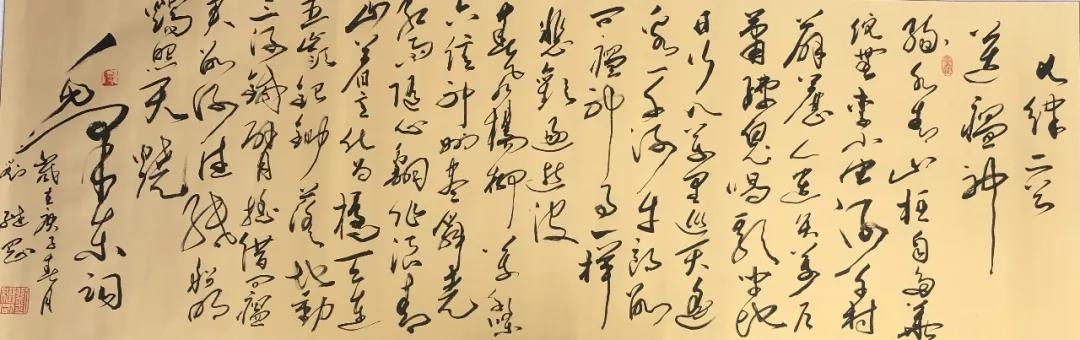 七律二首
送瘟神
绿水青山枉自多華
佗無奈小虫何千村
薜荔人遗矢萬户
萧疏鬼唱歌坐地
日行八萬里巡天遥
看一千河牛郎欲
问瘟神事一样
悲歡逐逝波
春风楊柳万千條
六億神州盡舜堯
红雨随心翻作浪青
山着意化为橋天连
五嶺銀鋤落地動
三河鐵臂摇借问瘟
君欲何往纸船明
燭照天燒
毛泽东词
歲在庚子春月
刘继